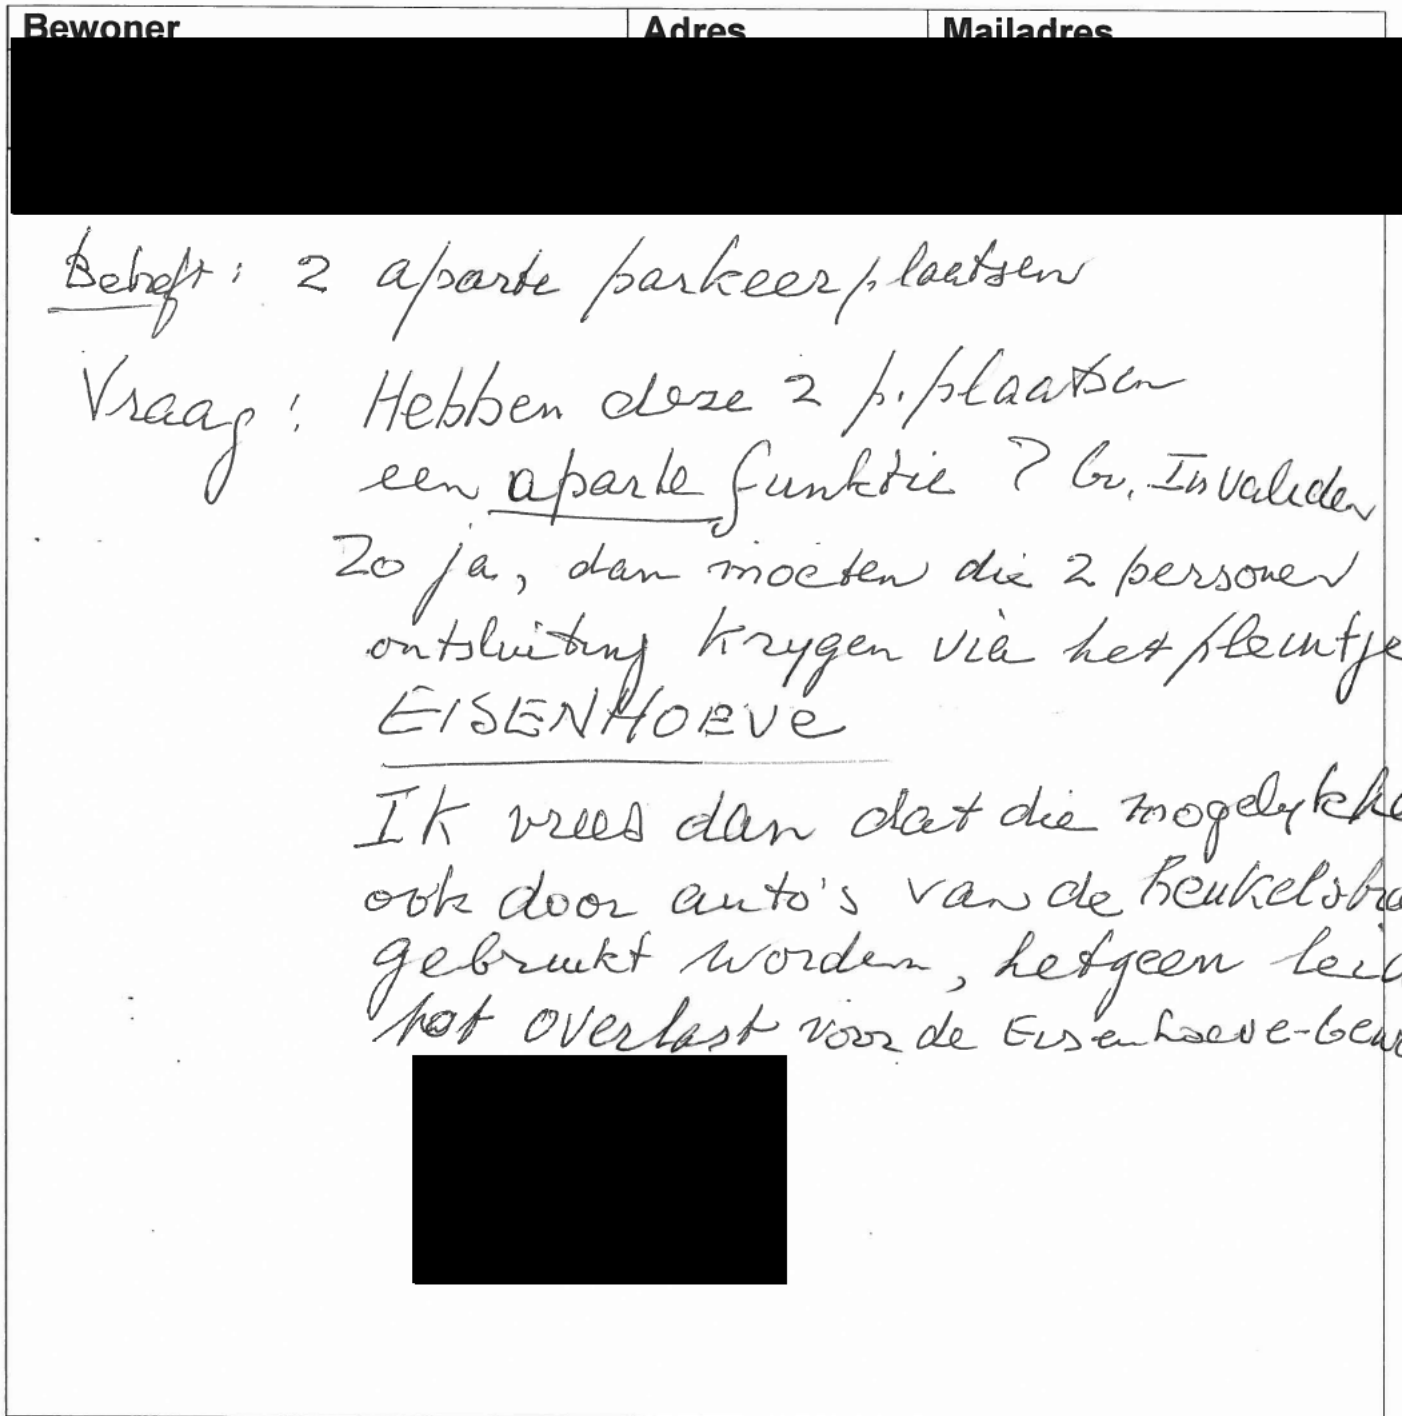 Bewoner Adres Mailadres
Betreft: 2 aparte parkeerplaatsen
Vraag: Hebben deze 2 p.plaatsen
een aparte funktie? bv. Invaliden
Zo ja, dan moeten die 2 personen
ontsluiting krygen via het pleintje
EISENHOEVE
Ik vrees dan dat die mogelykhe
ook door auto's van de Beukelsbra
gebruikt worden, hetgeen leid
tot overlast voor de Eisenhoeve-bewo